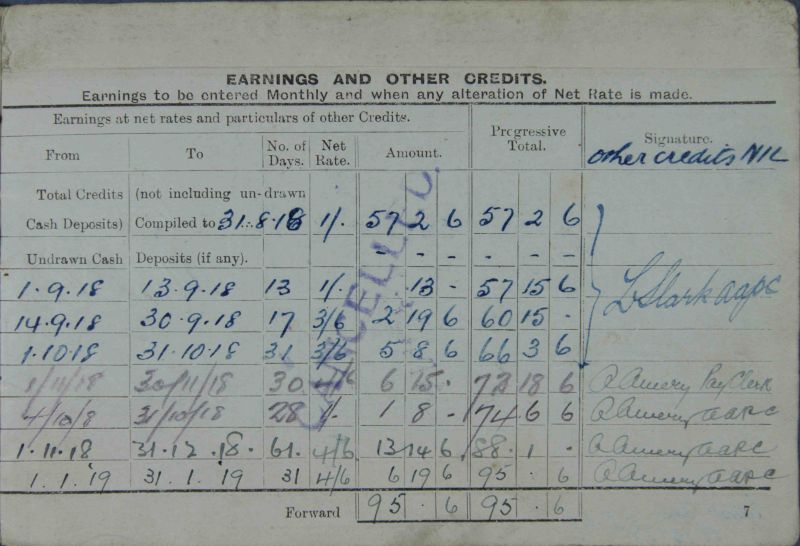 EARNINGS AND OTHER CREDITS.
Earnings to be entered Monthly and when any alteration of Net Rate is made.
Earnings at net rates and particulars of other Credits. Progressive Total. Signature.
From To No. of Days. Net Rate. Amount. other credits NIL
Total Credits (not including un-drawn
Cash Deposits) Compiled to 31.8.18 1/. 57 2 6 57 2 6
Undrawn Cash Deposits (if any). - - - - - -
1.9.18 13.9.18 13 1/. 13 - 57 15 6
14.9.18 30.9.18 17 3/6 2 19 6 60 15 .
1.10.18 31.10.18 31 3/6 5 8 6 66 3 6
1/11/18 30/11/18 30 4/6 6 15 . 72 18 6 A Amery Pay Clerk
4/10/8 31/10/18 28 1/. 1 8 - 74 6 6 A Amery
1.11.18 31.12.18. 61. 4/6 13 14 6 88 . 1 . A Amery
1.1.'19 31.1.'19 31 4/6 6 19 6 95 . 6 A Amery
Forward 95 . 6 95 . 6 7
CANCELLED